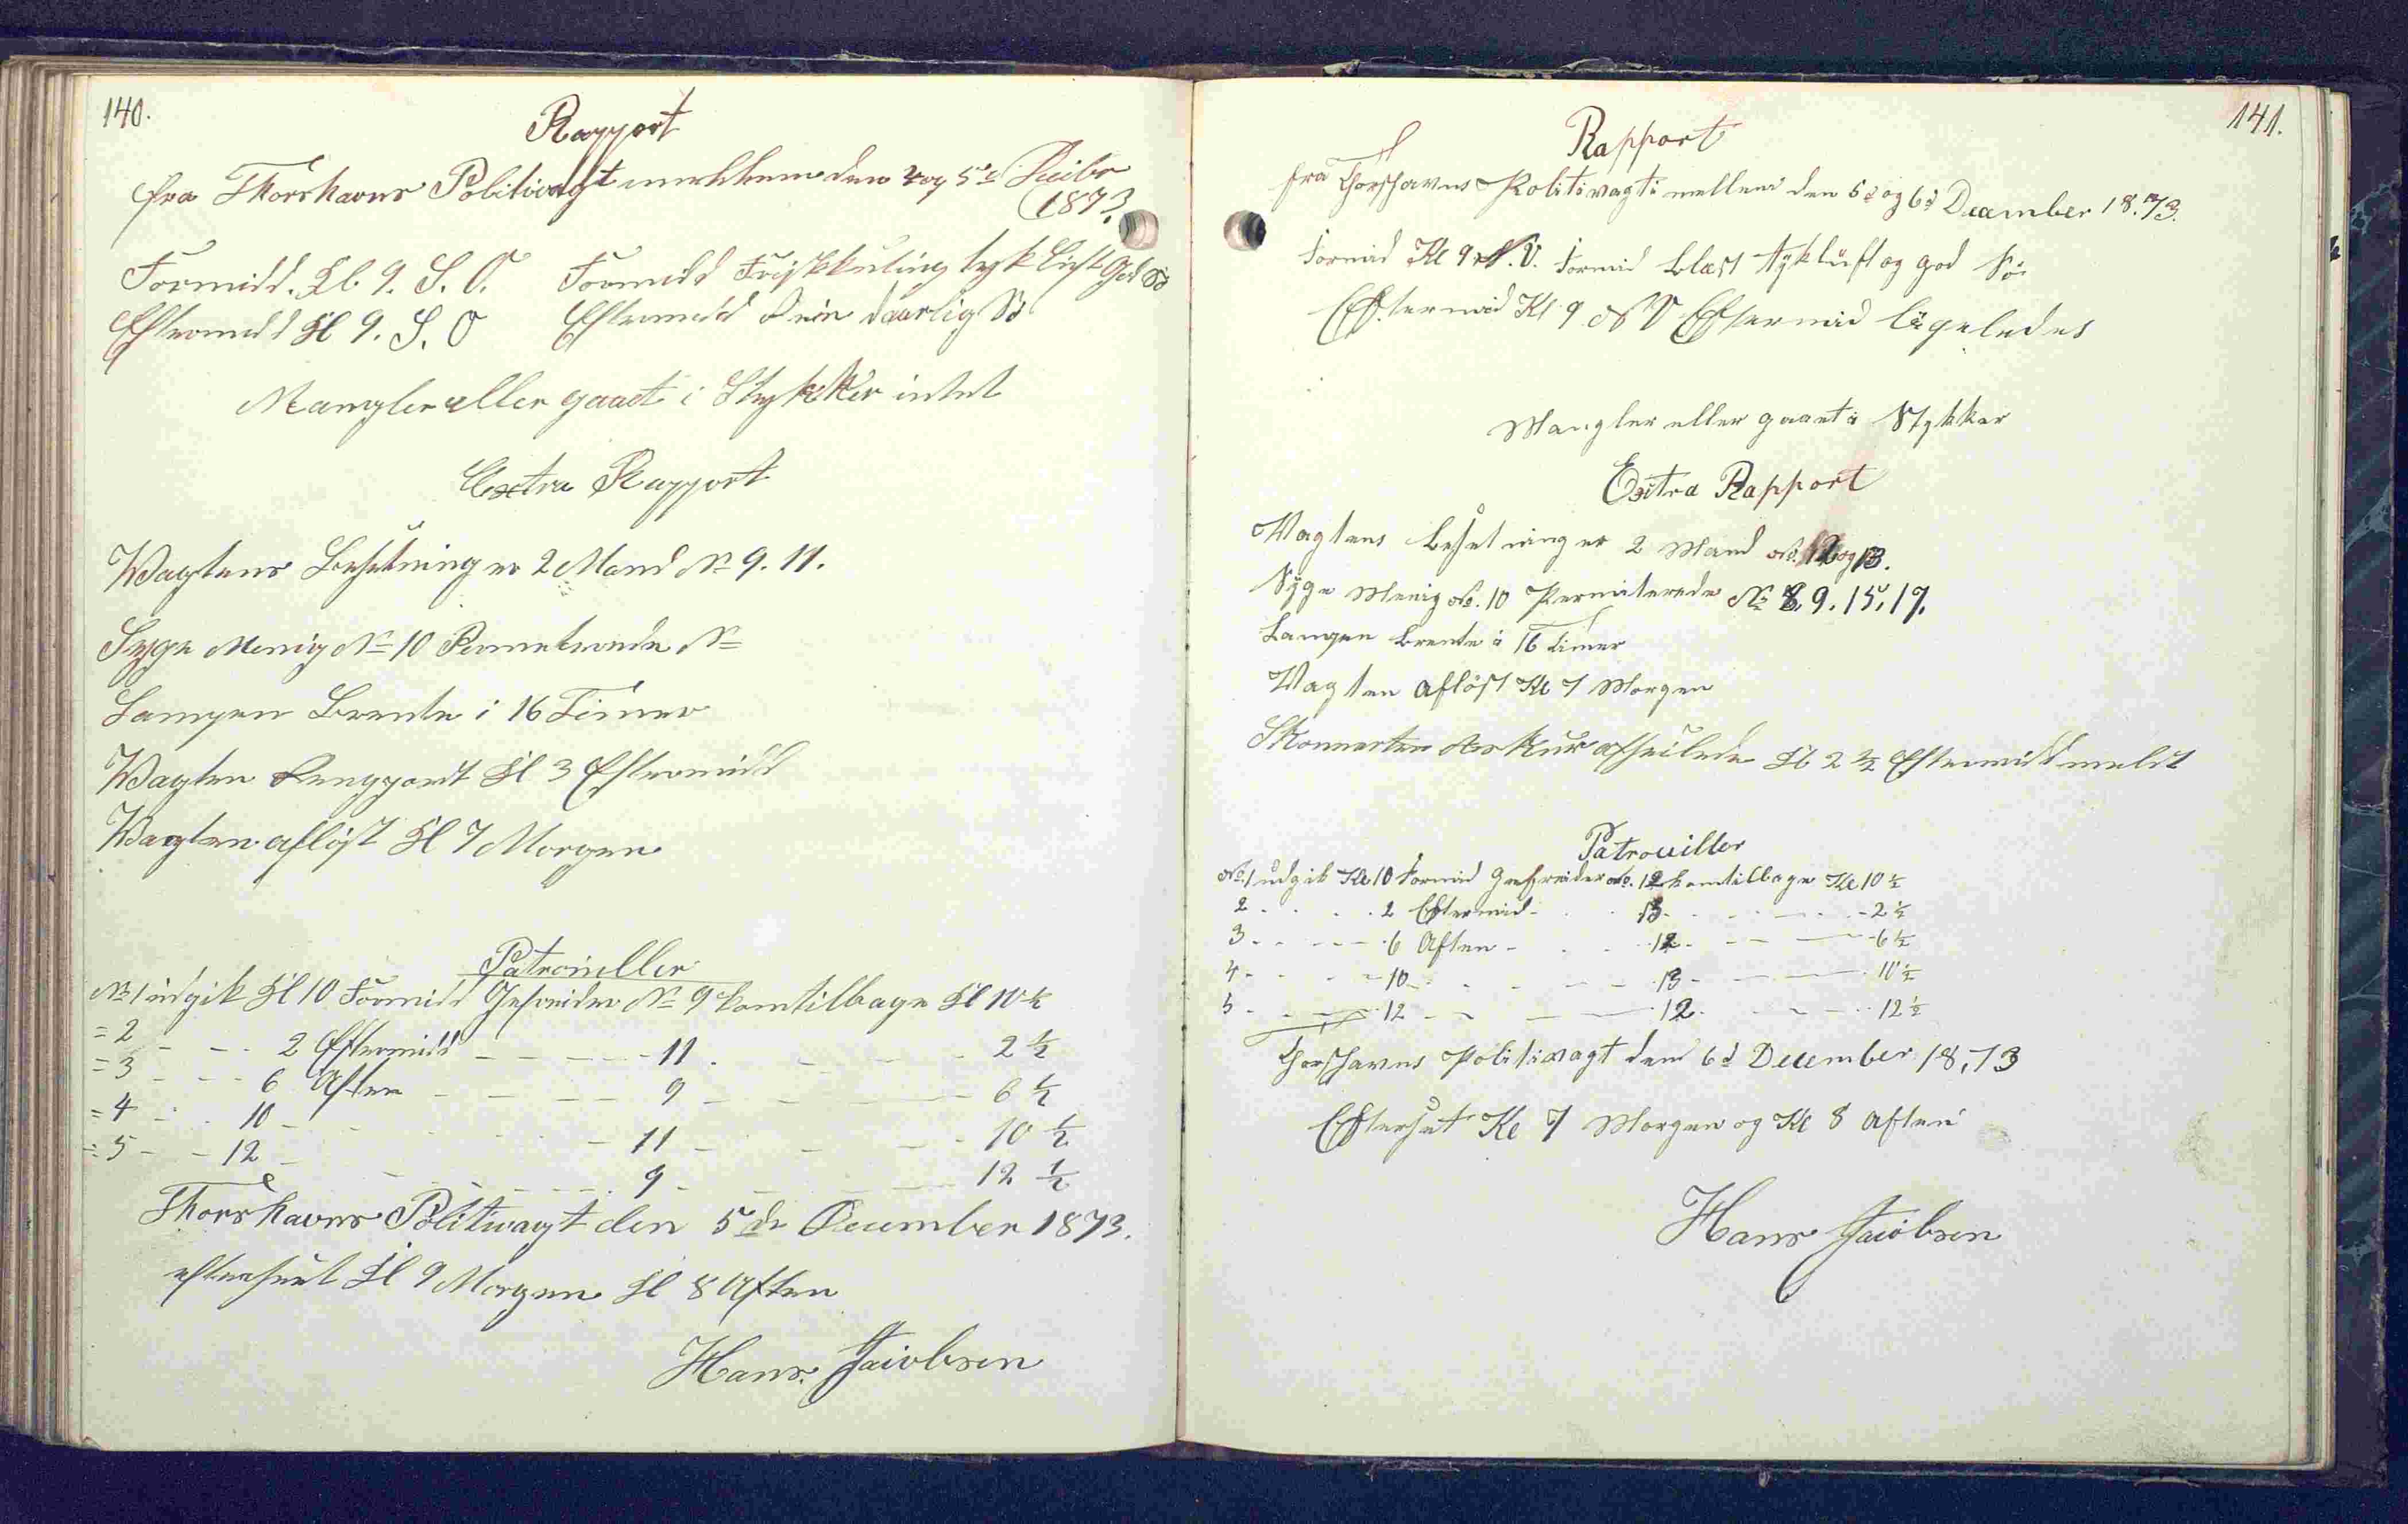 140.
Rapport
fra Thorshavns Politivagt mellem den 4 og 5d Decbr
1873.
Formidd. Kl. 9. S. O. Formidd Friskkuling tyk Luft God Sö
Eftermidd Kl 9. S. O Eftermidd daarlig Sö
Mangler eller gaaet i Stykker intet
Extra Rapport
Wagtens Besetning er 2 Mand No 9. 11.
Syge Menig No 10 Permeterede No
Lampen Brente i 16 Timer
Wagten Rengjordt Kl 3 Eftermidd
Wagten aflöst Kl 7 Morgen
Patrouller
No 1 udgik Kl 10 Formidd Gefreider No 9 kom tilbage Kl 10 ½
= 2 - - - 2 Eftermidd - - - - 11 - - - 2 ½
= 3 - - - 6 Aften - - - - 9 - - - 6 ½
= 4 - - 10 - - - - - 11 - - - 10 ½
= 5 - - 12 - - - - - 9 - - - 12 ½
Thorshavns Politivagt den 5de December 1873.
efterseet Kl 9 Morgen Kl 8 Aften
Hans Jacobsen
141.
Rapport
fra Thorshavns Politivagt mellem den 5d og 6d December 18.73.
Formid Kl 9 N. V. Formid Blæst tyk luft og god Sö
Eftermid Kl 9 N V Eftermid ligeledes
Mangler eller gaaet i Stykker
Extra Rapport
Vagtens Besetning er 2 Mand No. 12 og 13.
Syge Menig No. 10 Permiterede No 8, 9. 15, 17.
Lampen Brente i 16 Timer
Vagten aflöst Kl 7 Morgen
Skonnerten afseilede Kl 2 ½ Eftermidd meldt
Patrouiller
No. 1 udgik Kl 10 Formid Gefreider No. 12 kom tilbage Kl 10 ½
2 - - - 2 Eftermid - - 13 - - - 2 ½
3 - - - 6 Aften - - 12 - - - 6 ½
4 - - - 10 - - - 13 - - - 10 ½
5 - - - 12 - - - 12 - - - 12 ½
Thorshavns Politivagt den 6d December 18,73
Efterset Kl 7 Morgen og Kl 8 Aften
Hans Jacobsen